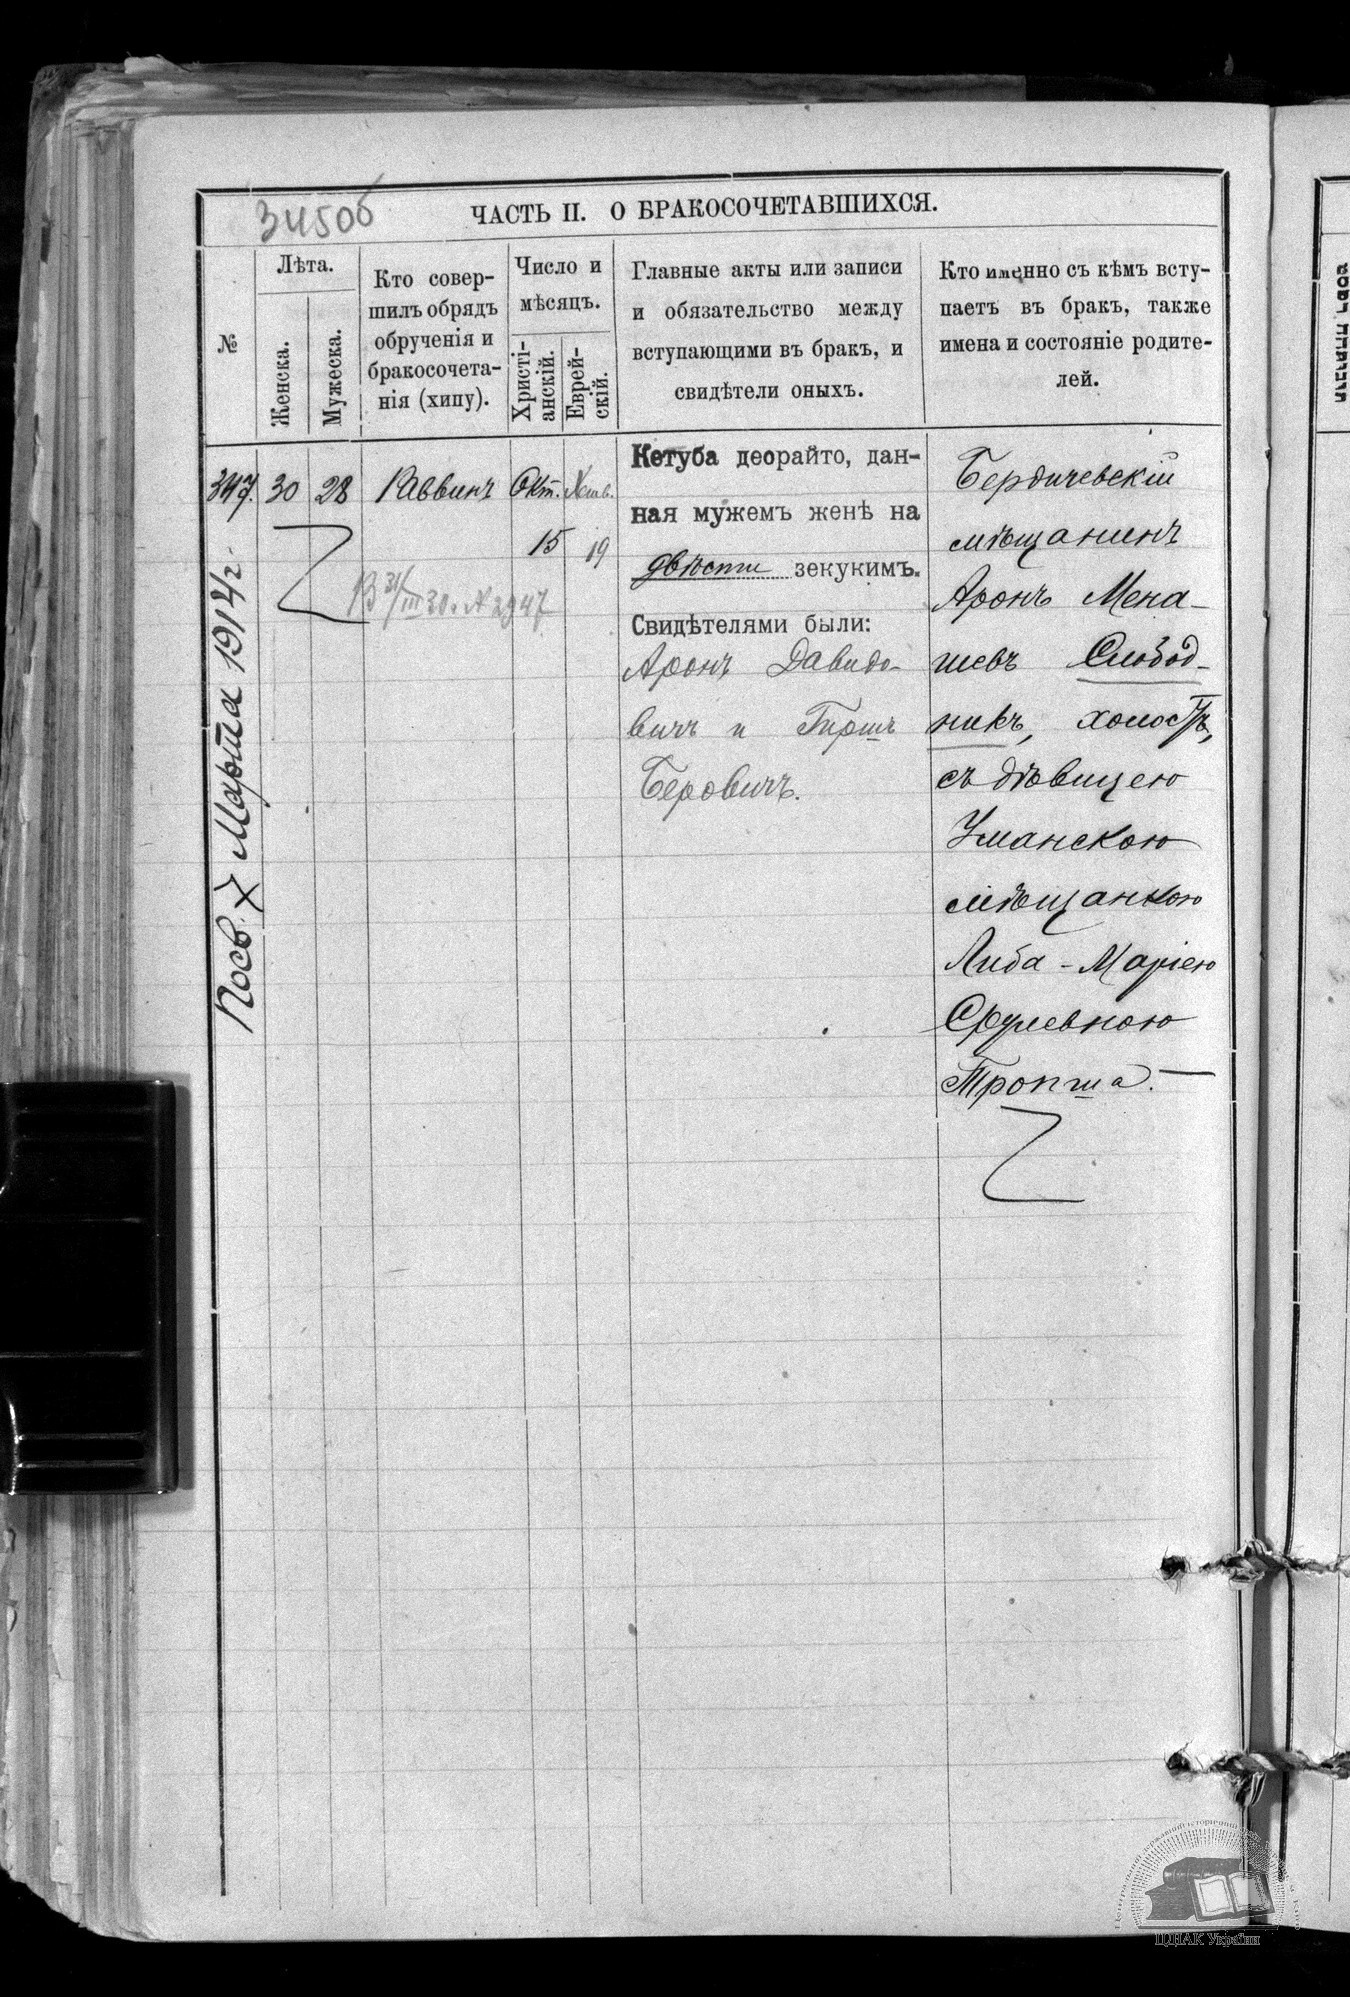 34506
ЧАСТЬ II. О БРАКОСОЧЕТАВШИХСЯ.
№
Лѣта.
Женска.
Мужеска.
Кто совер-
шилъ обрядъ
обрученія и
бракосочета-
нія (хипу).
Число и
мѣсяцъ.
Христі-
анскій.
Еврей-
скій.
Главные акты или записи
и обязательство между
вступающими въ бракъ, и
свидѣтели оныхъ.
Кто именно съ кѣмъ всту-
паетъ въ бракъ, также
имена и состояніе родите-
лей.
347. 30 28 Раввинъ Окт. Хешв.
15 19
В 31/III 30. № 2947
Посв. 7 Марта 1914 г.
Кетуба деорайто, дан-
ная мужемъ женѣ на
двѣсти зекукимъ.
Свидѣтелями были:
Аронъ Давидо-
вичъ и Гиршъ
Беровичъ.
Бердичевскій
мѣщанинъ
Аронъ Мена-
шевъ Слобод-
никъ, холостъ,
съ дѣвицею
Уманскою
мѣщанкою
Либа-Маріею
Срулевною
Тропша. —
ЦДІАК України